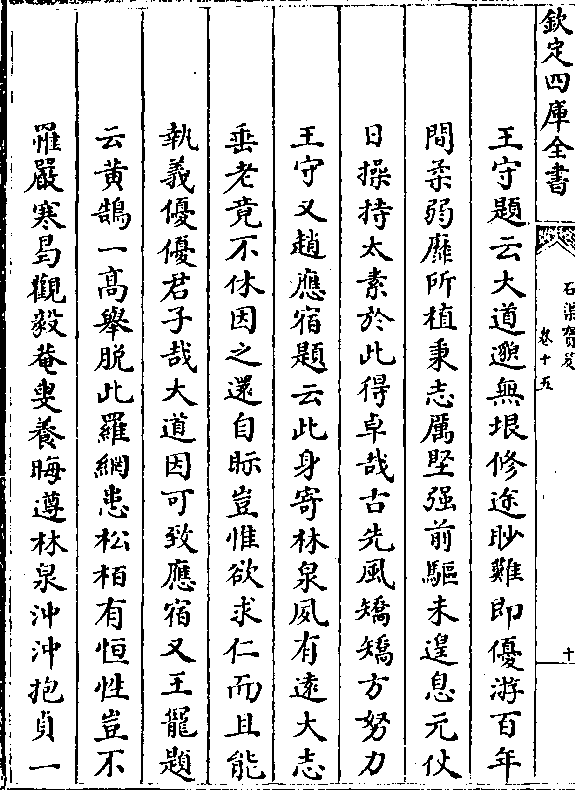 欽定四庫全書
石渠寶笈
卷十五
十
王守題云大道邈無垠修途眇難即優游百年
間柔弱靡所植秉志厲堅强前驅未遑息元伏
日操持太素於此得卓哉古先風矯矯方努力
王守又趙應宿題云此身寄林泉夙有遠大志
垂老竟不休因之還自眎豈惟欲求仁而且能
執義優優君子哉大道因可致應宿又王寵題
云黄鵠一高舉脱此羅網患松栢有恒性豈不
罹嚴寒曷觀毅菴叟養晦遵林泉沖沖抱貞一